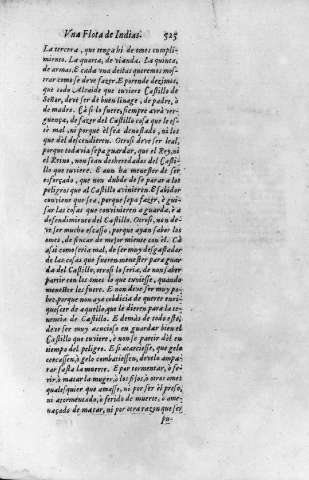 Vna Flota de Indias. 525
La tercera, que tenga hi de omes cumpli-
miento. La quarta, de vianda. La quinta,
de armas. E cada vna destas queremos mos-
trar como se deve fazer. E porende dezimos,
que todo Alcaide que tuviere Castillo de
Señor, deve ser de buen linage, de padre, ò
de madre. Cà si lo fuere, siempre avrà ver-
guença, de fazer del Castillo cosa que le es-
tè mal, ni porque èl sea denostado, ni los
que dèl descendieren. Otrosi deve ser leal,
porque todavia sepa guardar, que el Rey, ni
el Reino, non sean desheredados del Casti-
llo que tuviere. E aun ha menester de ser
esforçado, que non dubde de se parar à los
peligros que al Castillo avinieren. E sabidor
conviene que sea, porque sepa fazer, è gui-
sar las cosas que convinieren a guarda, è a
defendimiento del Castillo. Otrosi, non de-
ve ser mucho escasso, porque ayan sabor los
omes, de fincar de mejor miente con èl. Cà
asi como seria mal, de ser muy desgastador
de las cosas que fueren menester para guar-
da del Castillo, otrosi lo seria, de non saber
partir con los omes lo que tuviesse, quando
menester les fuere. E non deve ser muy po-
bre, porque non aya cobdicia de querer enri-
quescer de aquello, que le dieren para la te-
nencia de Castillo. E demàs de todo esto,
deve ser muy acucioso en guardar bien el
Castillo que tuviere, è non se partir dèl en
tiempo del peligro. E si acaesciesse, que gelo
cercassen, ò gelo combatiessen, develo ampa-
rar fasta la muerte. E por tormentar, ò fe-
rir, ò matar la muger, ò los fijos, ò otros omes
qualesquier que amasse, ni por ser èl preso,
ni atormentado, ò ferido de muerte, ò ame-
naçado de matar, ni por otra razon que ser
pu-